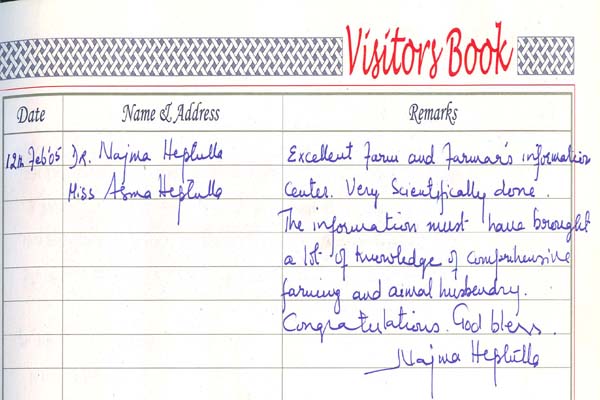 Visitors Book
Date Name & Address Remarks
12th Feb'05 Dr. Najma Heptulla Excellent Farm and Farmar's information
Miss Asma Heptulla Center. Very Scientifically done.
The information must have brought
a lot of knowledge of comprehensive
farming and aimal husbendry.
Congratulations. God bless.
Najma Heptulla